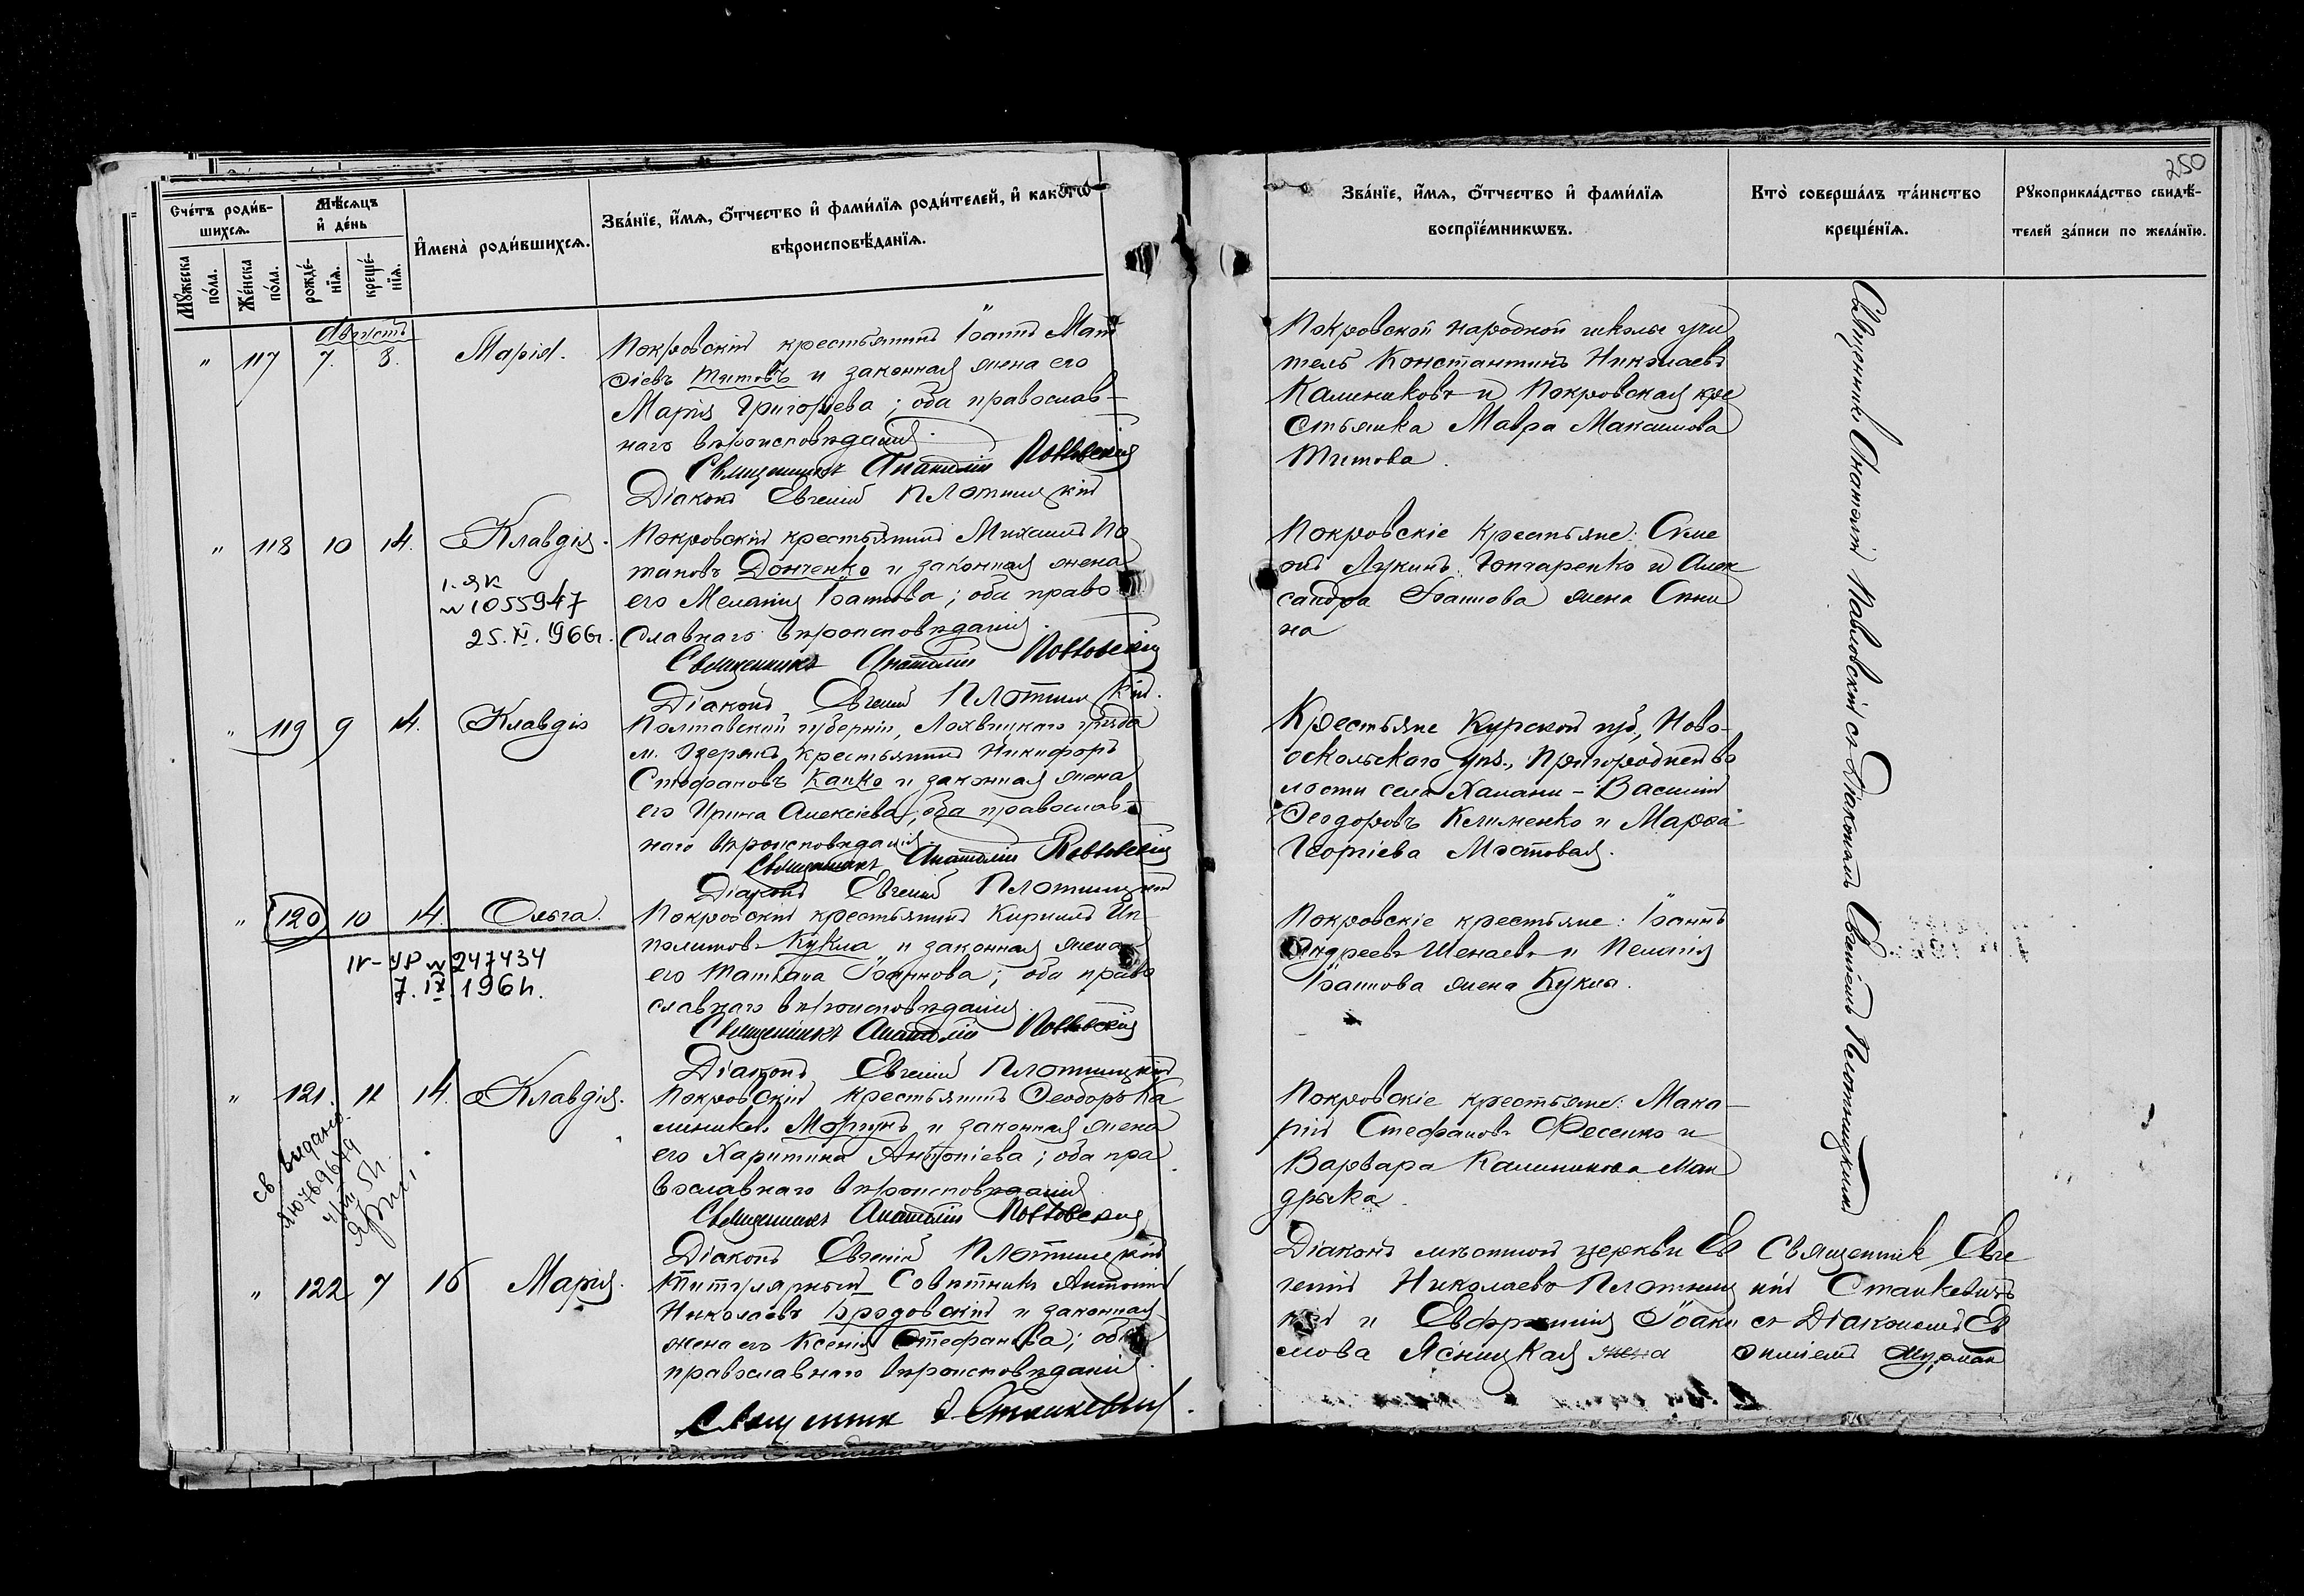 250
Сче́тъ роди́вшихсѧ.
Мѣ́сѧцъ и҆ де́нь
И҆мена̀ роди́вшихсѧ.
Зва́нїе, и҆́мѧ, ѻ҆́тчество и҆ фами́лїѧ роди́телей, и҆ како́гѡ
вѣроисповѣ́данїѧ.
Мꙋ́жеска по́ла.
Же́нска по́ла.
рожде́нїѧ.
креще́нїѧ.
Зва́нїе, и҆́мѧ, ѻ҆́тчество и҆ фами́лїѧ
воспрїе́мникѡвъ.
Кто̀ соверша́лъ та́инство
креще́нїѧ.
Рꙋкоприкла́дство свидѣ́-
телей за́писи по жела́нїю.
Августъ
" 117 7. 8. Марія.
Покровскій крестьянинъ Іоаннъ Мат
ѳіевъ Титовъ и законная жена его
Марія Григорьева; оба православ-
наго вѣроисповѣданія.
Священникъ Анатолій Павловскій
Діаконъ Евгеній Плотницкій
Покровской народной школы учи
тель Константинъ Николаевъ
Калениковъ и Покровская кре
стьянка Мавра Максимова
Титова.
Священникъ Анатолій Павловскій съ Діакономъ Евгеніемъ Плотницкимъ
" 118 10 14. Клавдія.
1-ЯК
№ 1055947
25.XI.1966г.
Покровскій крестьянинъ Михаилъ По
таповъ Донченко и законная жена
его Меланія Іоаннова; оба право
славнаго вѣроисповѣданія.
Священникъ Анатолій Павловскій
Діаконъ Евгеній Плотницкій.
Покровскіе крестьяне: Симе
онъ Лукинъ Гончаренко и Алек
сандра Іоаннова жена
на
" 119 9 14. Клавдія
Полтавской губерніи, Лохвицкаго уѣзда
м. Озерянъ, крестьянинъ Никифоръ
Стефановъ Капко и законная жена
его Ирина Алексіева; оба православ-
наго вѣроисповѣданія.
Священникъ Анатолій Павловскій
Діаконъ Евгеній Плотницкій
Крестьяне Курской губ., Ново-
оскольскаго уѣз., Пригородней во
лости села Халани - Василій
Ѳеодоровъ Клименко и Марѳа
Георгіева
" 120 10 14. Ольга.
IV-УР № 247434
7.IX.196
Покровскій крестьянинъ Кириллъ Ип-
политовъ Кукла и законная жена
его Татіана Іоаннова; оба право
славнаго вѣроисповѣданія.
Священникъ Анатолій Павловскій
Діаконъ Евгеній Плотницкій
Покровскіе крестьяне: Іоаннъ
Андреевъ Шенаевъ и Пелагія
Іоаннова жена Кукла.
" 121. 11 14. Клавдія.
св. выдано
Покровскій крестьянинъ Ѳеодоръ Ка
линиковъ Моргунъ и законная жена
его Харитина Антоніева; оба пра
вославнаго вѣроисповѣданія
Священникъ Анатолій Павловскій
Діаконъ Евгеній Плотницкій
Покровскіе крестьяне: Мака-
рій Стефановъ Фесенко и
Варвара Калиникова Ман
дрыка.
" 122 7 16 Марія.
Титулярный Совѣтникъ Антоній
Николаевъ Бродовскій и законная
жена его Ксенія Стефанова; оба
православнаго вѣроисповѣданія.
Священник Е Станкевичъ.
Діаконъ мѣстной церкви Ев
геній Николаевъ Плотниц
кій и Евфросинія Іоаки
мова Ясницкая жена
Священник Евге
ній Станкевичъ
съ Діакономъ Ев
ѳиміемъ